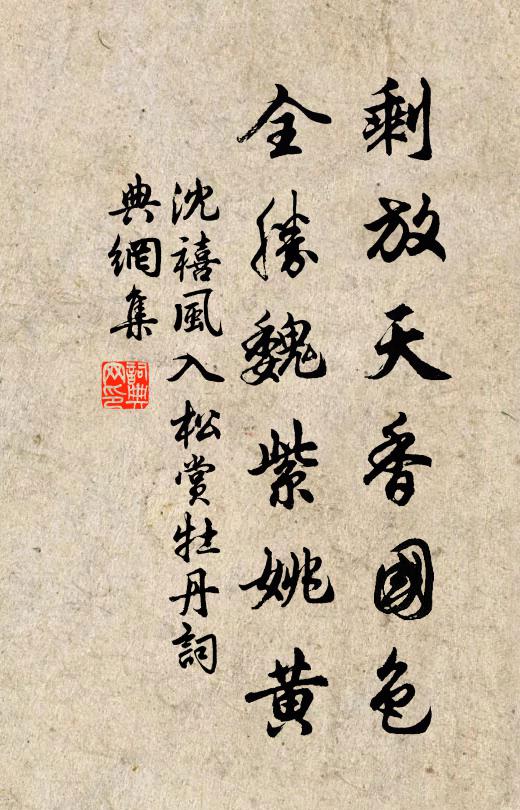 剩放天香國色
全勝魏紫姚黃
沈禧風入松賞牡丹詞
典網集
詞典
网印